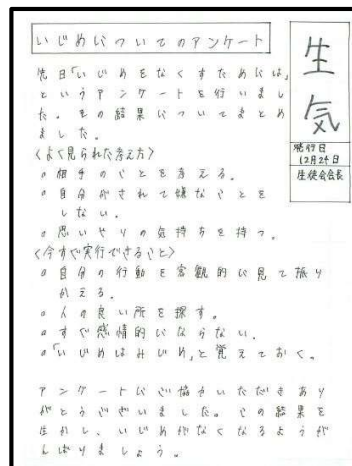 いじめについてのアンケート
生気
12月24日
生徒会会長
先日「いじめをなくすためには」
というアンケートを行いまし
た。その結果についてまとめ
ました。
〈よく見られた考え方〉
相手のことを考える。
自分がされて嫌なことを
しない。
思いやりの気持ちを持つ。
〈今すぐ実行できること〉
自分の行動を客観的に見て振り
かえる。
人の良い所を探す。
すぐ感情的にならない。
「いじめはみじめ」と覚えておく。
アンケートにご協力いただきあり
がとうございました。この結果を
生かし、いじめがなくなるようが
んばりましょう。